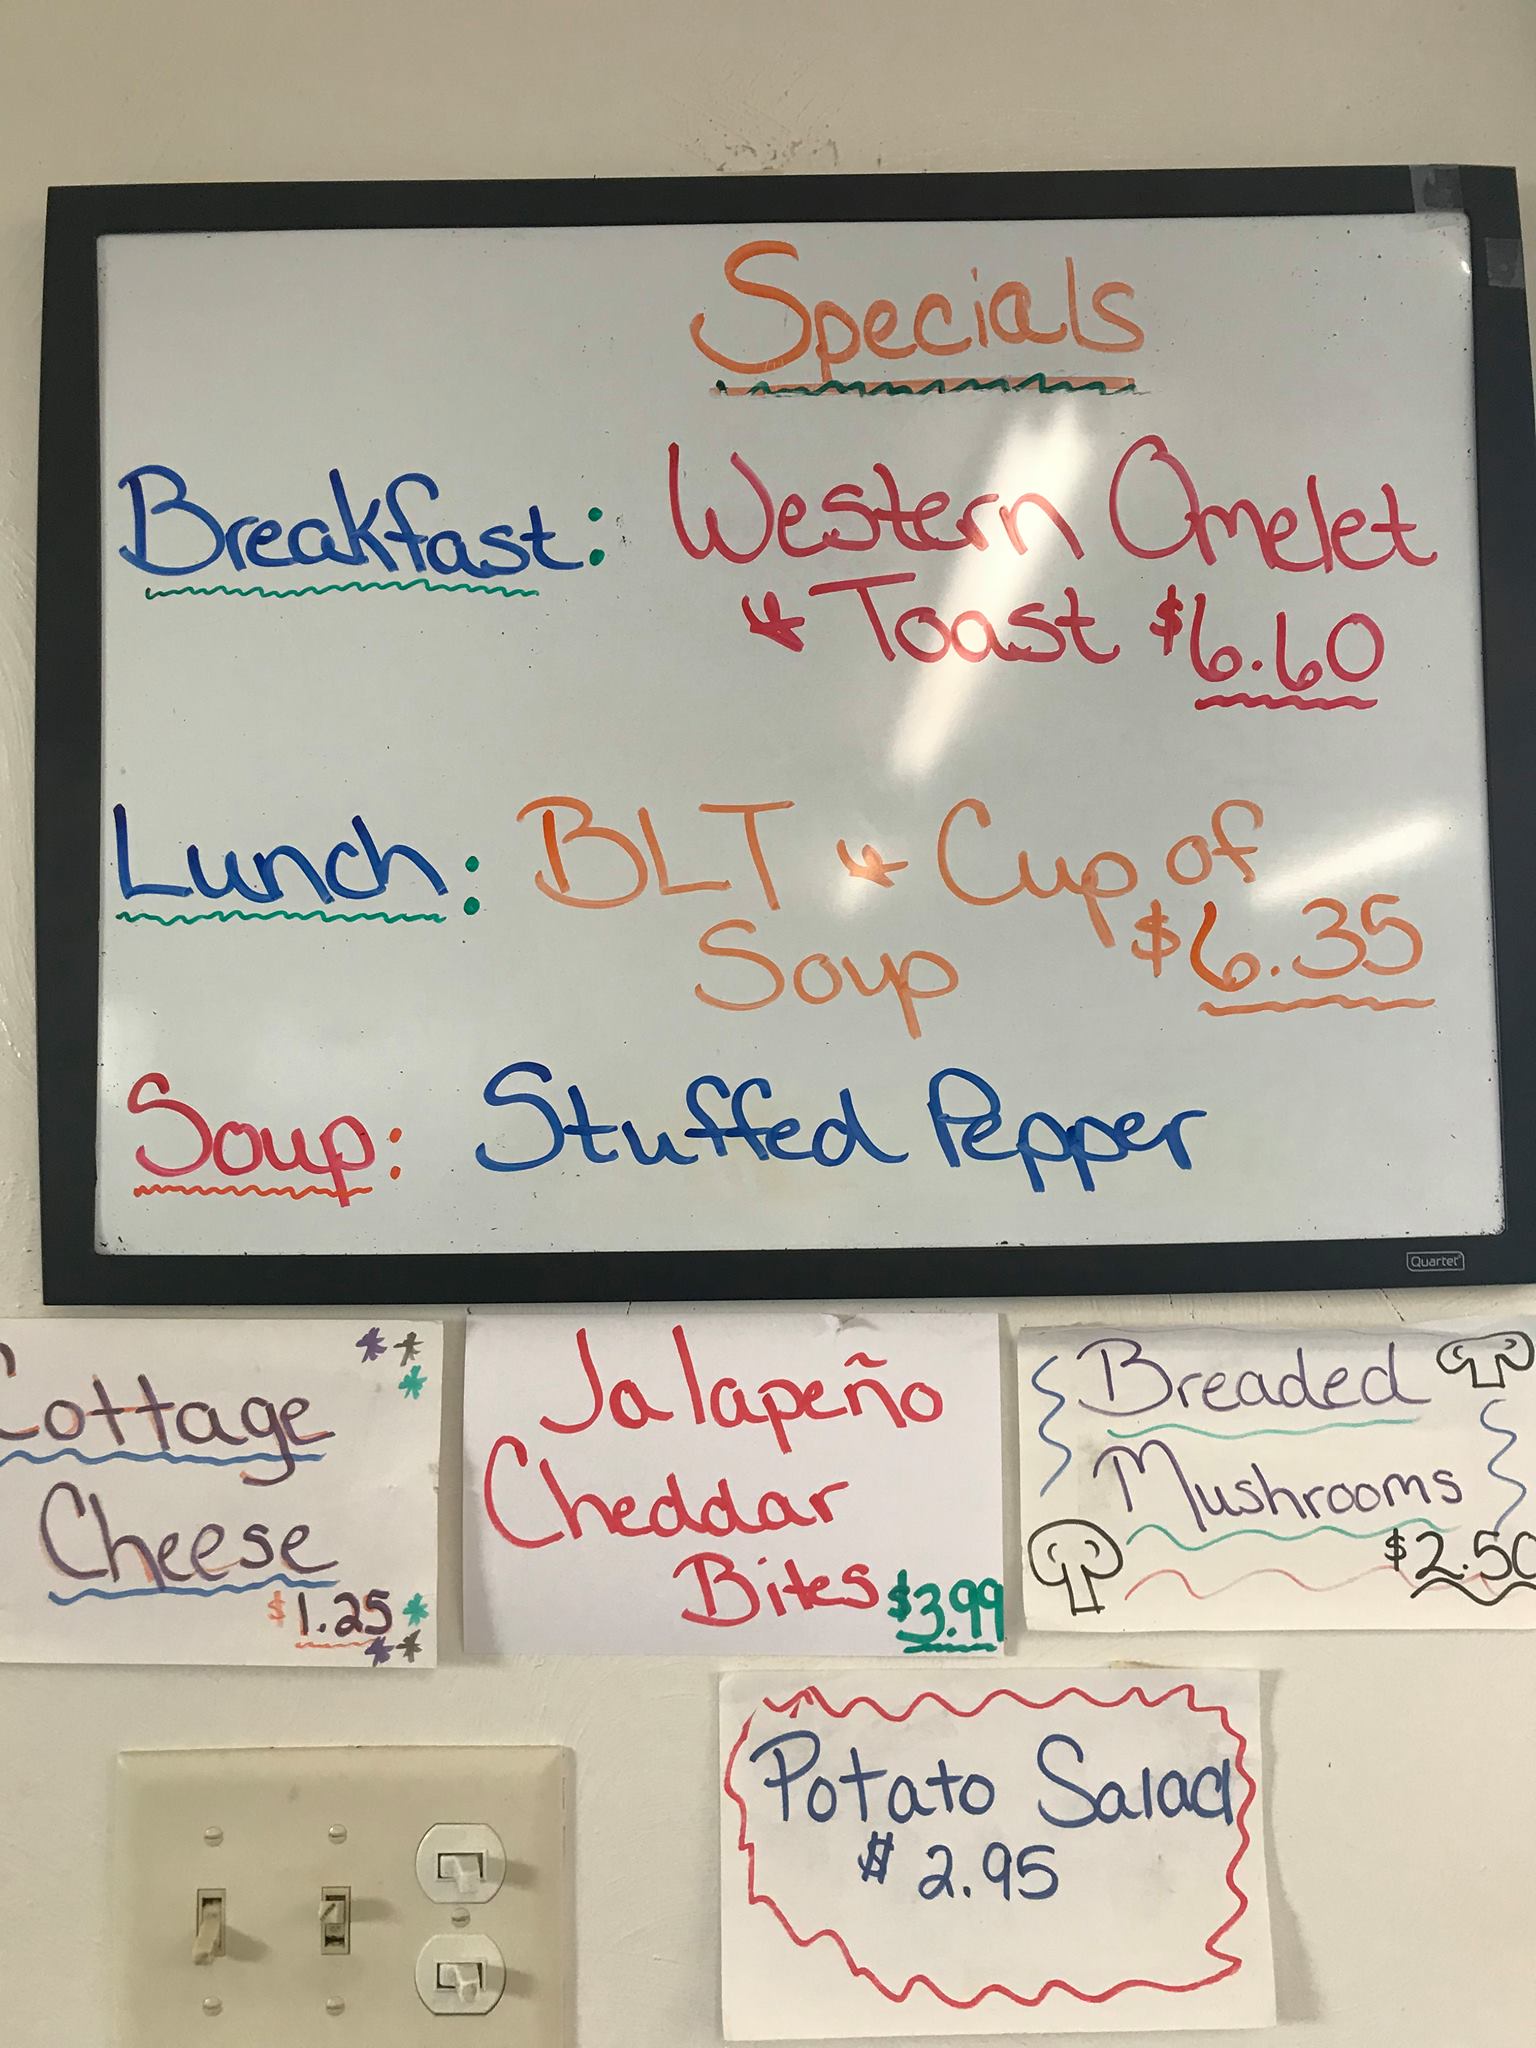 Specials
Breakfast: Western Omelet
& Toast $6.60
Lunch: BLT & Cup of
Soup $6.35
Soup: Stuffed Pepper
Quartet
Cottage
Cheese
$1.25
Jalapeño
Cheddar
Bites $3.99
Breaded
Mushrooms
$2.50
Potato Salad
$2.95